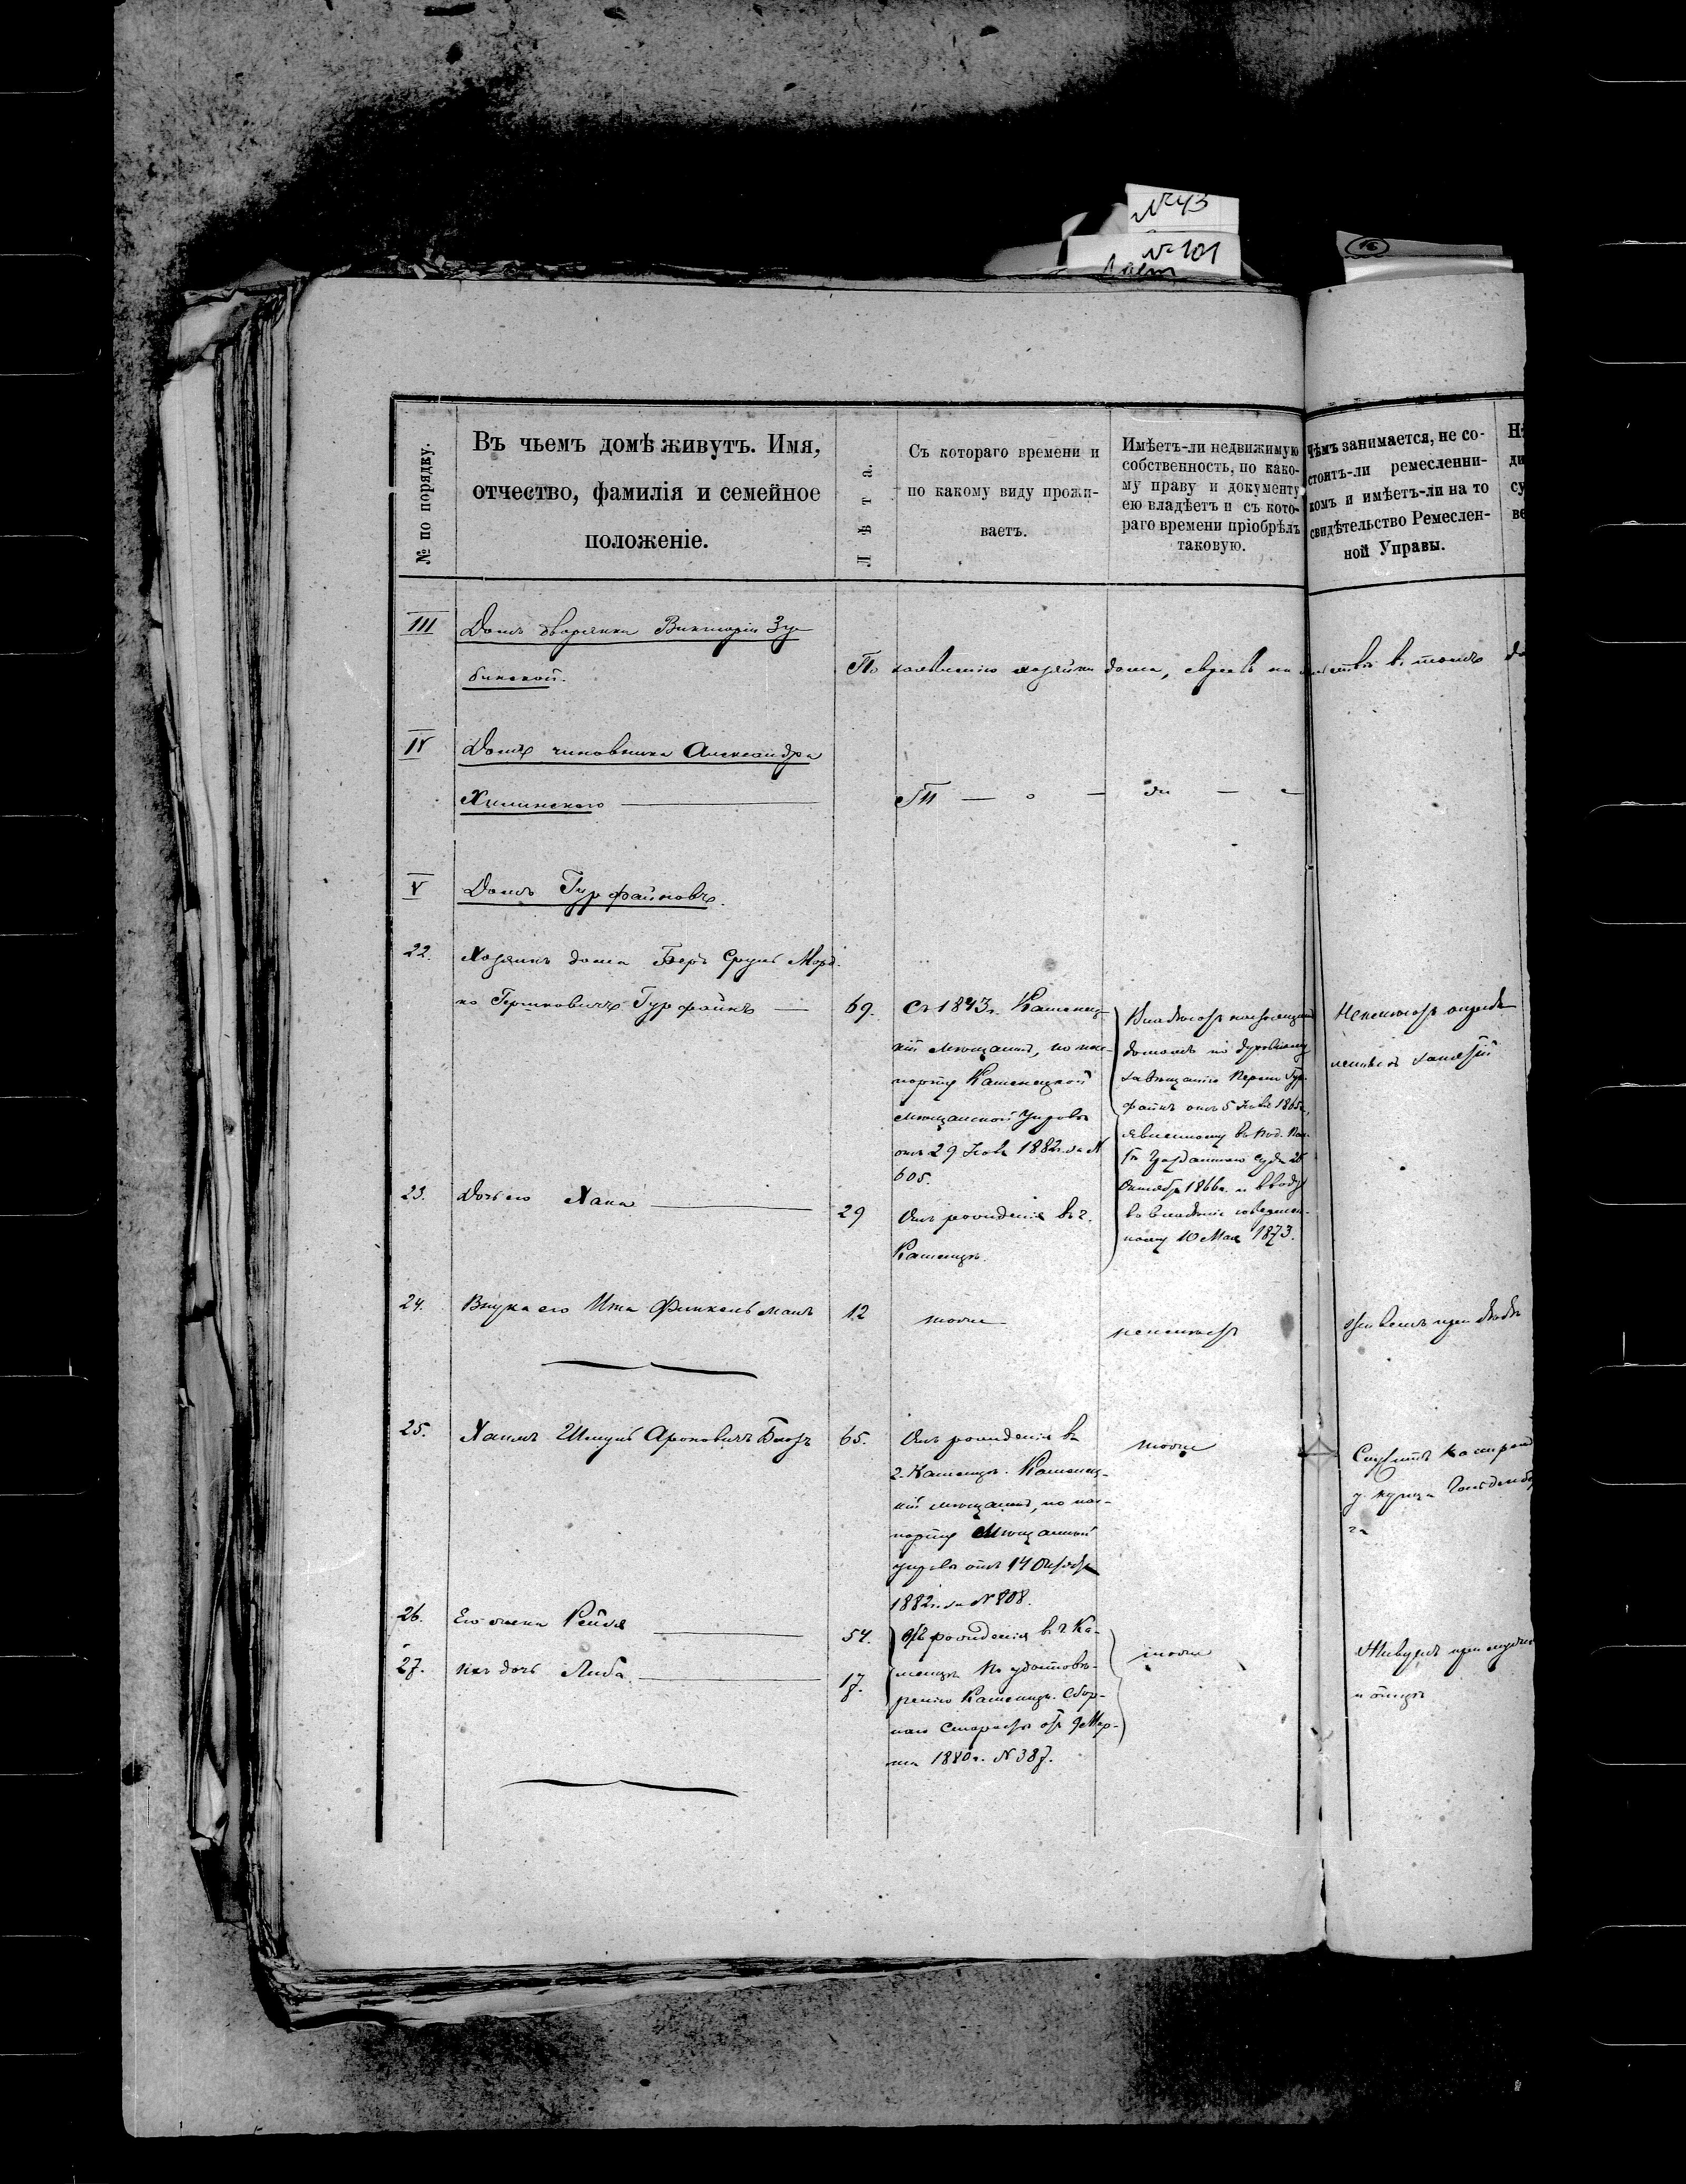 №43
№101
16
№ по порядку.
Въ чьемъ домѣ живутъ. Имя,
отчество, фамилія и семейное
положеніе.
Лѣта.
Съ котораго времени и
по какому виду прожи-
ваетъ.
Имѣетъ-ли недвижимую
собственность, по како-
му праву и документу
ею владѣетъ и съ кото-
раго времени пріобрѣлъ
таковую.
Чѣмъ занимается, не со-
стоитъ-ли ремесленни-
комъ и имѣетъ-ли на то
свидѣтельство Ремеслен-
ной Управы.
III
Домъ дворянки Викторіи Зу-
бинской.
По заявленію хозяйки дома, евреевъ въ томъ
IV
Домъ чиновника Александра
Хилинскаго
Т — о — же —
V
Домъ Гурфайновъ.
22.
Хозяинъ дома Беръ Сруль Морд-
ко Гершковичъ Гурфайнъ
69.
Съ 1843 г. Каменец-
кій мѣщанинъ, по пас-
порту Каменецкой
мѣщанской Управы
отъ 29 Нояб. 1882 г. за №
605.
Владѣетъ
домомъ по духовному
завѣщанію Гур-
файнъ отъ 5 1865 г.,
явленному въ Под. Пал.
Гражданскаго суда 25
Октября 1866 г. и вводу
во владѣніе совершен-
ному 10 Мая 1873.
Неимѣетъ опредѣ-
леннаго занятій
23.
Дочь его Хана
29
Отъ рожденія въ г.
Каменцѣ.
24.
Внучка его Ита Финкельманъ
12
тоже
неимѣетъ
Живетъ при дѣдѣ
25.
Хаимъ Шмуль Ароновичъ Блозъ
65.
Отъ рожденія въ
г. Каменцѣ. Каменец-
кій мѣщанинъ, по пас-
порту Мѣщанской
управы отъ 14 Октября
1882 г. за № 808.
тоже
Служитъ Кассиромъ
у купца Гольденбер
га
26.
Его жена Рейзя
54.
Отъ рожденія въ г. Ка-
менцѣ по удостовѣ-
ренію Каменецк. Сбор-
наго Старосты отъ 9 Мар-
та 1880 г. № 387.
тоже
Живутъ при мужѣ
и отцѣ
27.
ихъ дочь Либа
17.